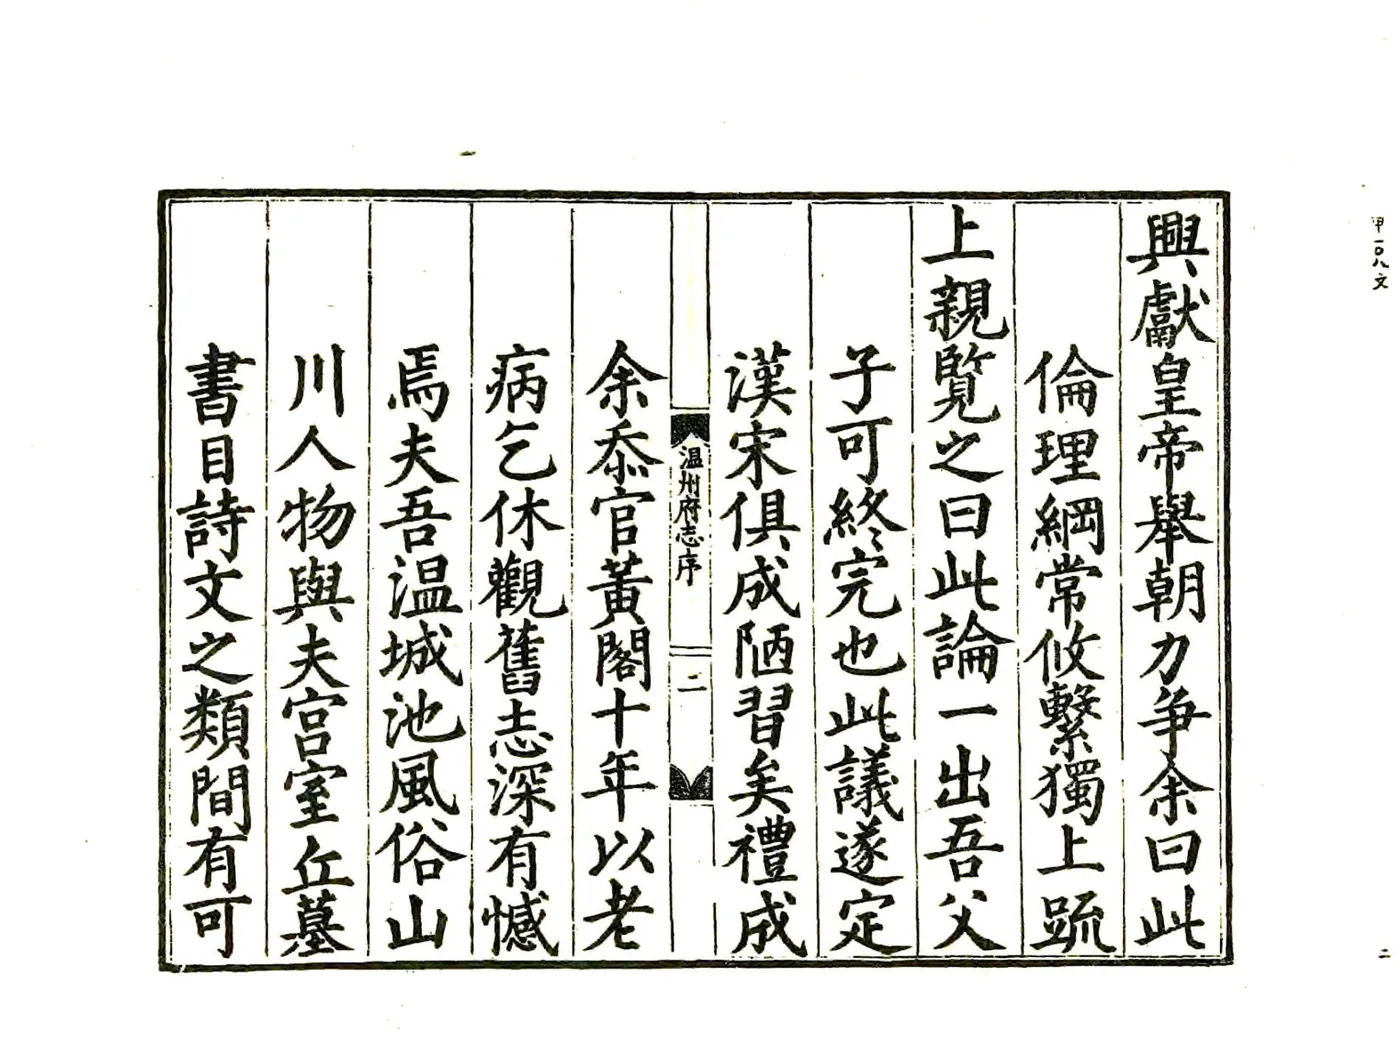 興獻皇帝舉朝力爭余曰此
倫理綱常攸繫獨上䟽
上親覽之曰此論一出吾父
子可終完也此議遂定
漢宋俱成陋習矣禮成
温州府志序
二
余忝官黃閣十年以老
病乞休觀舊志深有憾
焉夫吾温城池風俗山
川人物與夫宫室丘墓
書目詩文之類間有可
甲一〇八文
二